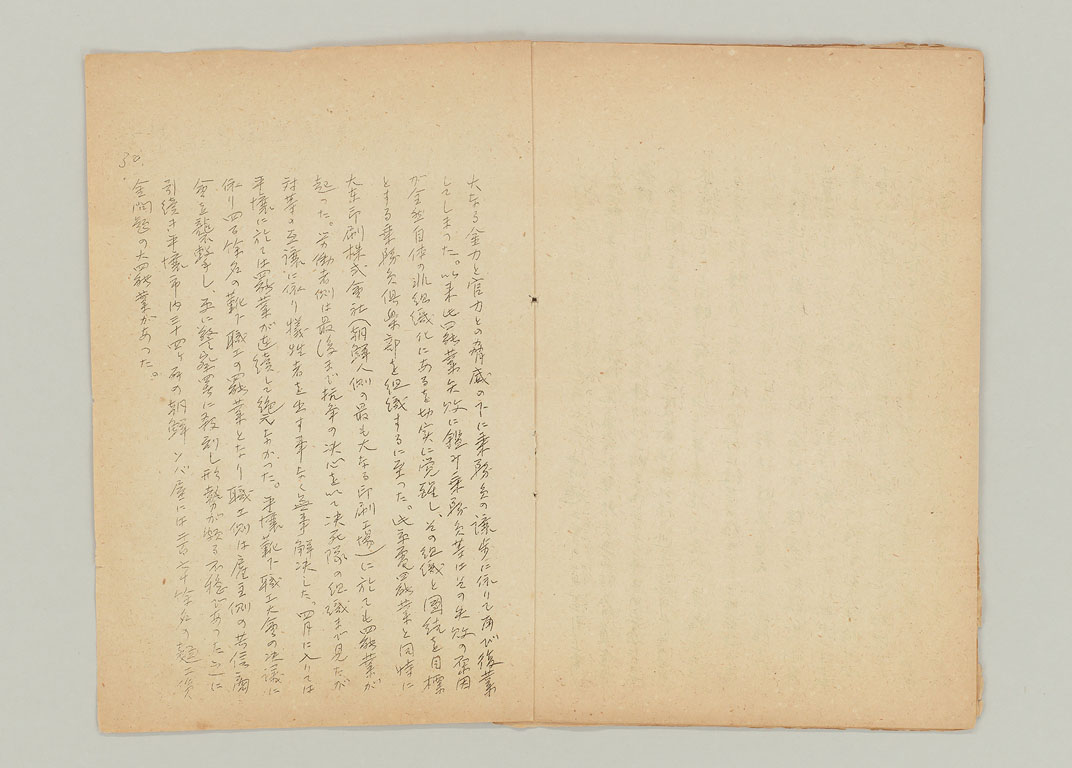 大なる金力と官力との脅威の下に乗務員の譲歩に依りて再び復業
してしまった。以来此罷業失敗に鑑み乗務員等はその失敗の原因
が全然自体の非組織化にあるを切実に覚醒し、その組織と団結を目標
とする乗務員倶楽部を組織するに至った。此電車罷業と同時に
大東印刷株式会社（朝鮮人側の最も大なる印刷工場）に於ても罷業が
起った。労働者側は最後まで抗争の決心を以て決死隊の組織まで見たが
対等の互譲に依り犠牲者を出す事なく無事解決した。四月に入りては
平壌に於ては罷業が連続して絶えなかった。平壌靴下職工大会の決議に
依り四百余名の靴下職工の罷業となり職工側は雇主側の共信商
会を襲撃し、更に警察署に殺到し形勢が頗る不穏であった。更に
引続き平壌市内三十四ヶ所の朝鮮ソバ屋には二百七十余名の麺工賃
金問題の大罷業があった。
30.